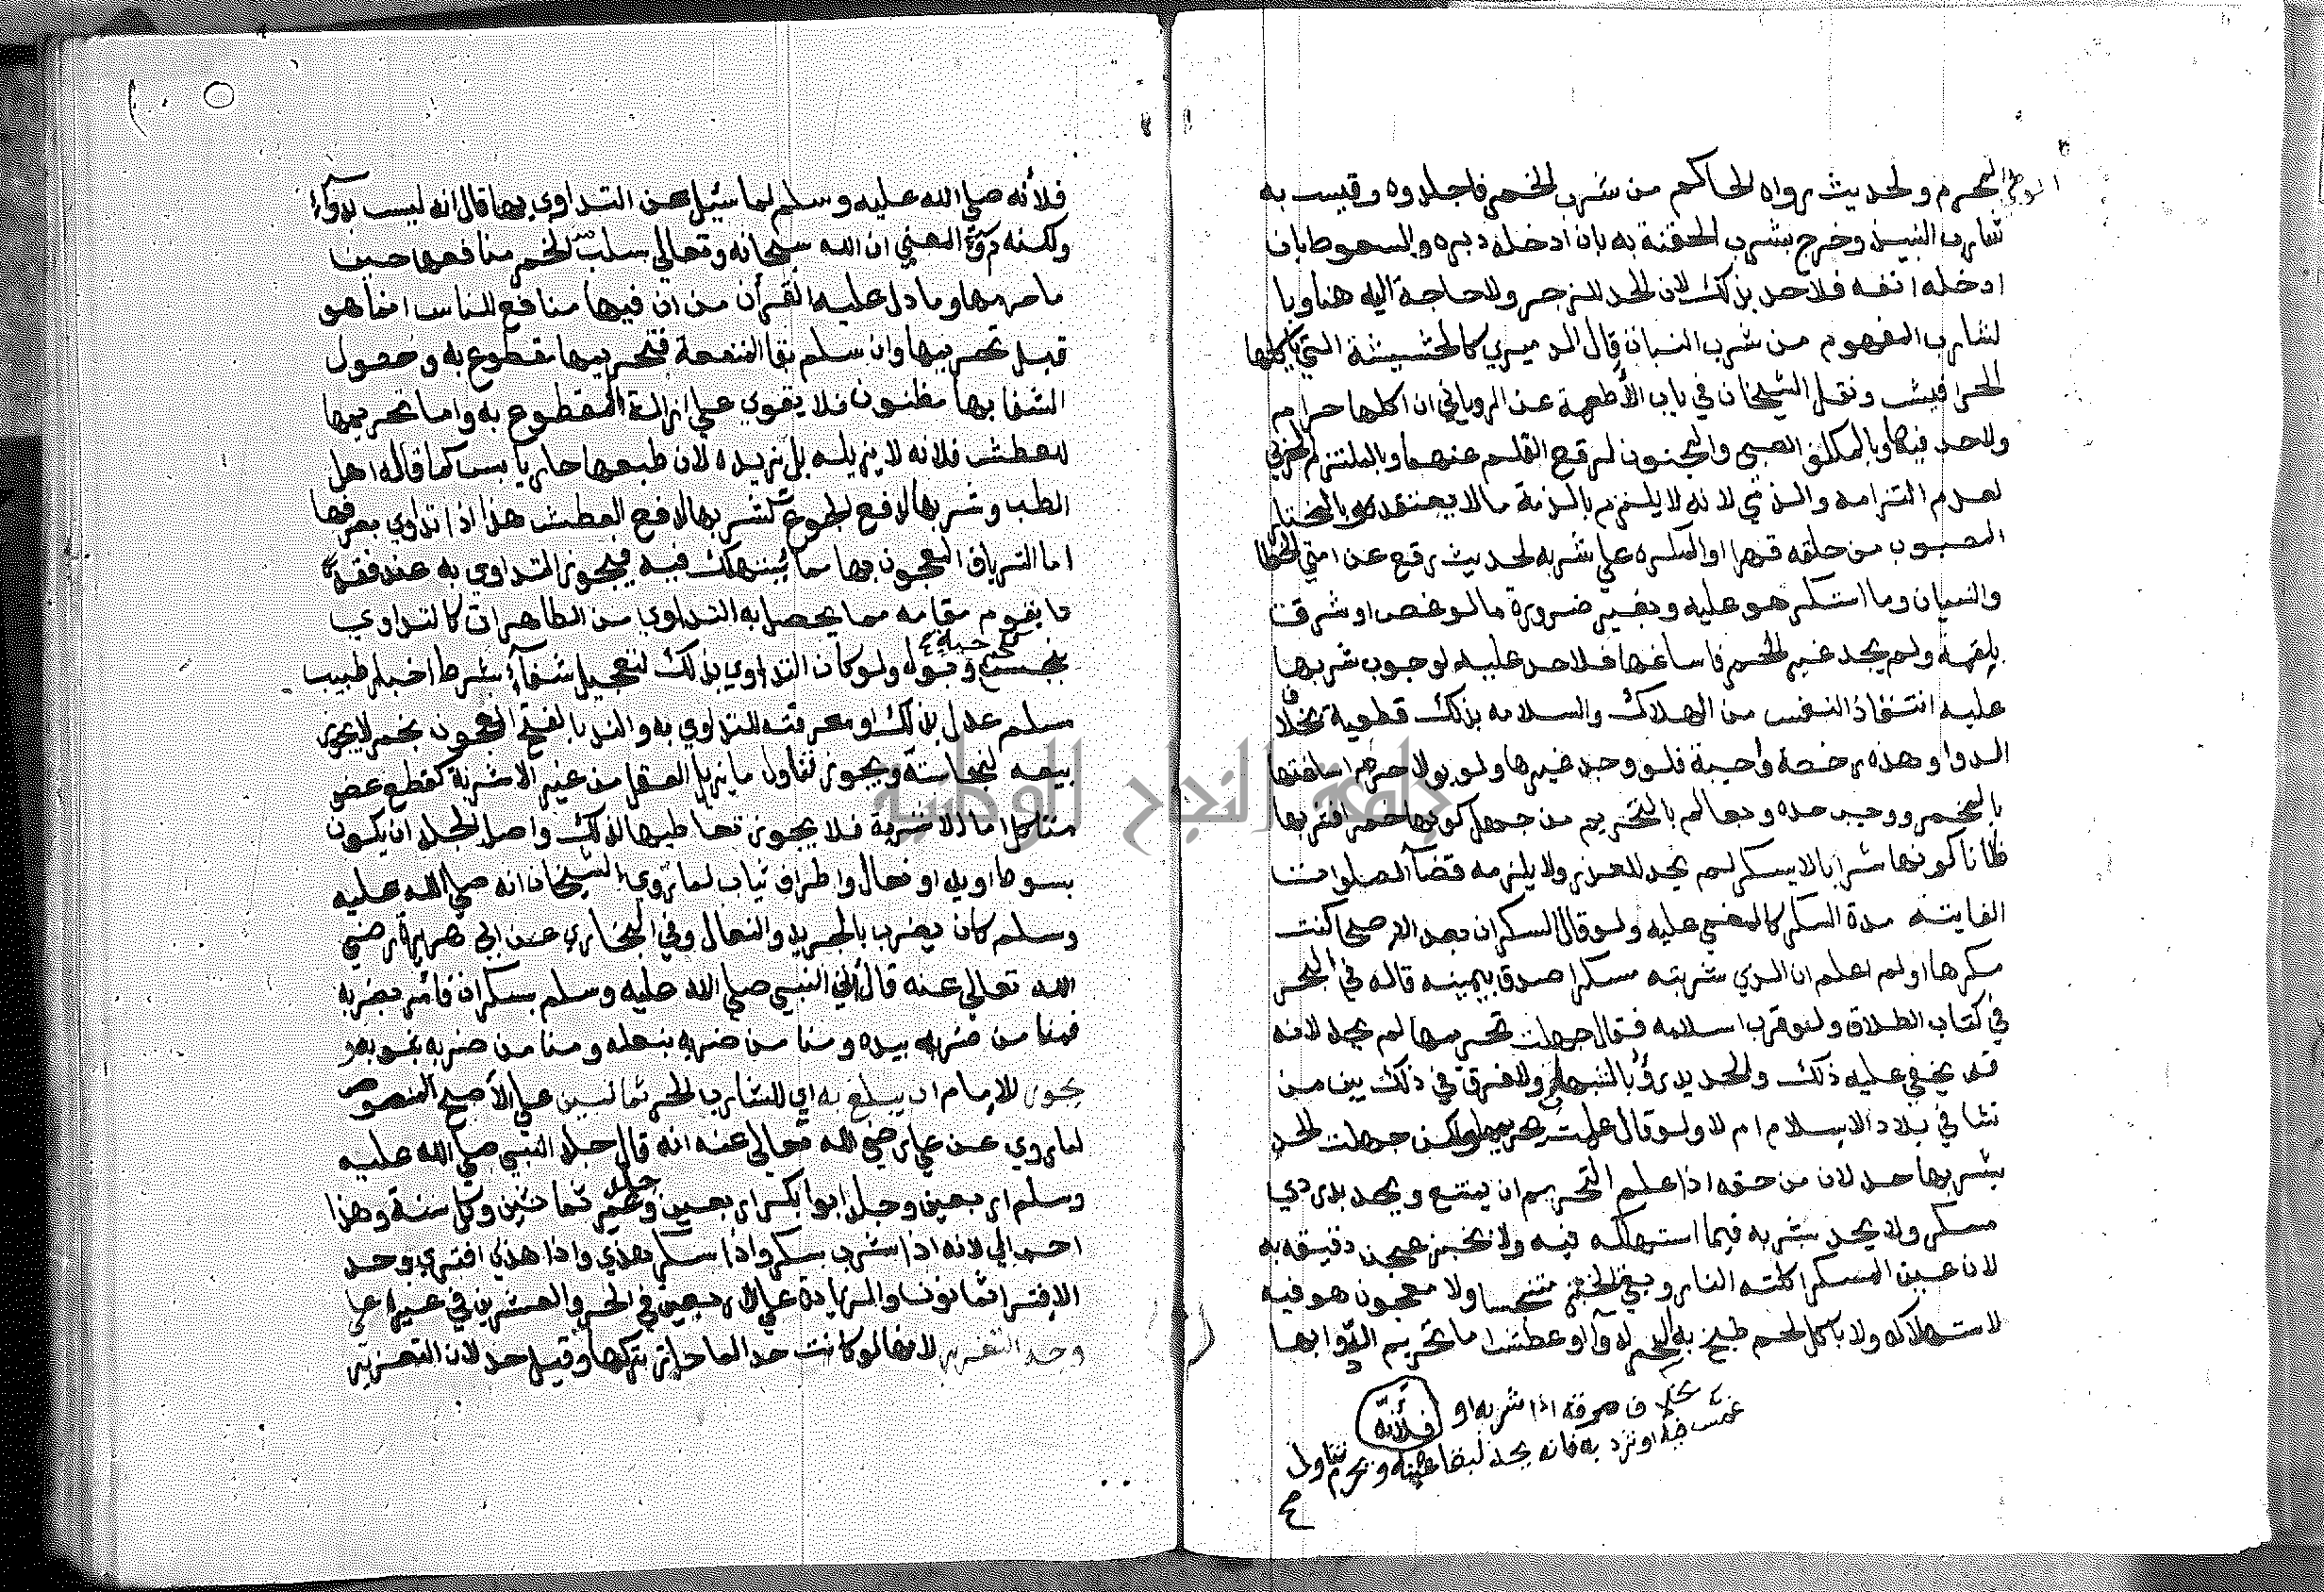 المحرم ولحديث رواه الحاكم من شرب الخمر فاجلدوه وقيس به
شارب النبيذ وخرج بشرب الحقنة به بان أدخله دبره والسعوط بان
ادخله انفه فلا حد بذلك لان الحد للزجر ولا حاجة اليه هنا وبا
لشارب المفهوم من شرب النبات قال الدميري كالحشيشة التي ياكلها
الحرافيش ونقل الشيخان في باب الأطعمة عن الروياني ان اكلها حرام
ولا حد فيها وبالمكلف الصبي والمجنون لرفع القلم عنهما وبالملتزم الحربي
لعدم التزامه والذمي لانه لا يلتزم بالذمة مالا يعتقده وبالمختار
المصبوب من حلقه قهرا او المكره علي شربه لحديث رفع عن امتي الخطا
والنسيان وما استكرهو عليه وبغير ضرورة ما لو غص او شرقت
بلقمة ولم يجد غير الخمر فاساغها فلا حد عليه لوجوب شربها
عليه انتقاذ النفس من الهلاك والسلامه بذلك قطعية بخلاف
الدوا وهذه رخصة واجبة فلو وجد غيرها ولو بولا حرم اساغتها
بالخمر ووجب حده وبعالم بالتحريم من جهل كونها خمرا فشربها
ظانا كونها شرابا لا يسكر لم يحد للعذر ولا يلزمه قضآ الصلوات
الفايته مدة السكر كالمغمي عليه ولو قال السكران بعد الاصحا كنت
مكرها او لم اعلم ان الذي شربته مسكرا صدق بيمينه قاله في البحر
في كتاب الطلاق ولو قرب اسلامه فقال جهلت تحريمها لم يحد لانه
قد يخفي عليه ذلك والحد يدرؤ بالشبهة ولا فرق في ذلك بين من
نشا في بلاد الاسلام ام لا ولو قال علمت تحريمها ولكن جهلت الحد
بشربها حد لان من حقه اذا علم التحريم ان يمتنع ويحد بدردي
مسكر ولا يحد بشربه فيما استهلكه فيه ولا بخبز عجن دقيقه به
لان عين المسكر اكلته النار وبقي الخبز متنجسا ولا معجون هو فيه
لاستهلاكه ولا باكل لحم طبخ به الخمر لدوآ او عطشا ما تحريم الدوا بها
بخلاف مرقه اذا شربه او فلأنه
غمس فيه او ثرد به فانه يحد لبقا عينه ويحرم تناول
صح
فلأنه صلي الله عليه وسلم لما سُئِل عن التداوي بها قال انه ليست بدوآء
ولكنه دآء المعني ان الله سبحانه وتعالي سلب الخمر منافعها حين
ما حرمها وما دل عليه القرأن من ان فيها منافع للناس انما هو
قبل تحريمها وان سلم بقا المنفعة فتحريمها مقطوع به وحصول
الشفا بها مظنون فلا يقوي علي ازالة المقطوع به واما تحريمها
للعطش فلانه لا يزيله بل يزيده لان طبعها حار يابس كما قاله اهل
الطب وشربها لدفع الجوع كشربها لدفع العطش هذا اذا تداوي بصرفها
اما الترياق المعجون بها مما يُستهلك فيه فيجوز التداوي به عند فقد
ما يقوم مقامه مما يحصل به التداوي من الطاهرات كالتداوي
بنجس كلحم حية وبول ولو كان التداوي بذلك لتعجيل شفآء بشرط اخبار طبيب
مسلم عدل بذلك او معرفته للتداوي به والند بالفتح المعجون بخمر لا يجوز
بيعه لنجاسته ويجوز تناول ما يزيل العقل من غير الاشربة كقطع عضو
متاكل اما الاشربة فلا يجوز تعاطيها لذلك واصل الجلد ان يكون
بسوط او يد او نعال واطراف ثياب لما روي الشيخان انه صلي الله عليه
وسلم كان يضرب بالجريد والنعال وفي البخاري عن ابي هريرة رضي
الله تعالي عنه قال أُتي النبي صلي الله عليه وسلم بسكران فأمر بضربه
فمنا من ضربه بيده ومنا من ضربه بنعله ومنا من ضربه بثوبه و
يجوز للامام ان يبلغ به اي للشارب الحر ثمانين علي الأصح المنصوص
لما روي عن علي رضي الله تعالي عنه انه قال جلد النبي صلي الله عليه
وسلم اربعين وجلد ابوا بكر اربعين وجلد عمر ثمانين وكل سنة وهذا
احب الي لانه اذا شرب سكر واذا سكر هذي واذا هذي افتري وحد
الافترا ثمانون والزيادة علي الاربعين في الحر والعشرين في غيره علي
وجه التعزير لانها لو كانت حدا لما جاز تركها وقيل حد لان التعزير